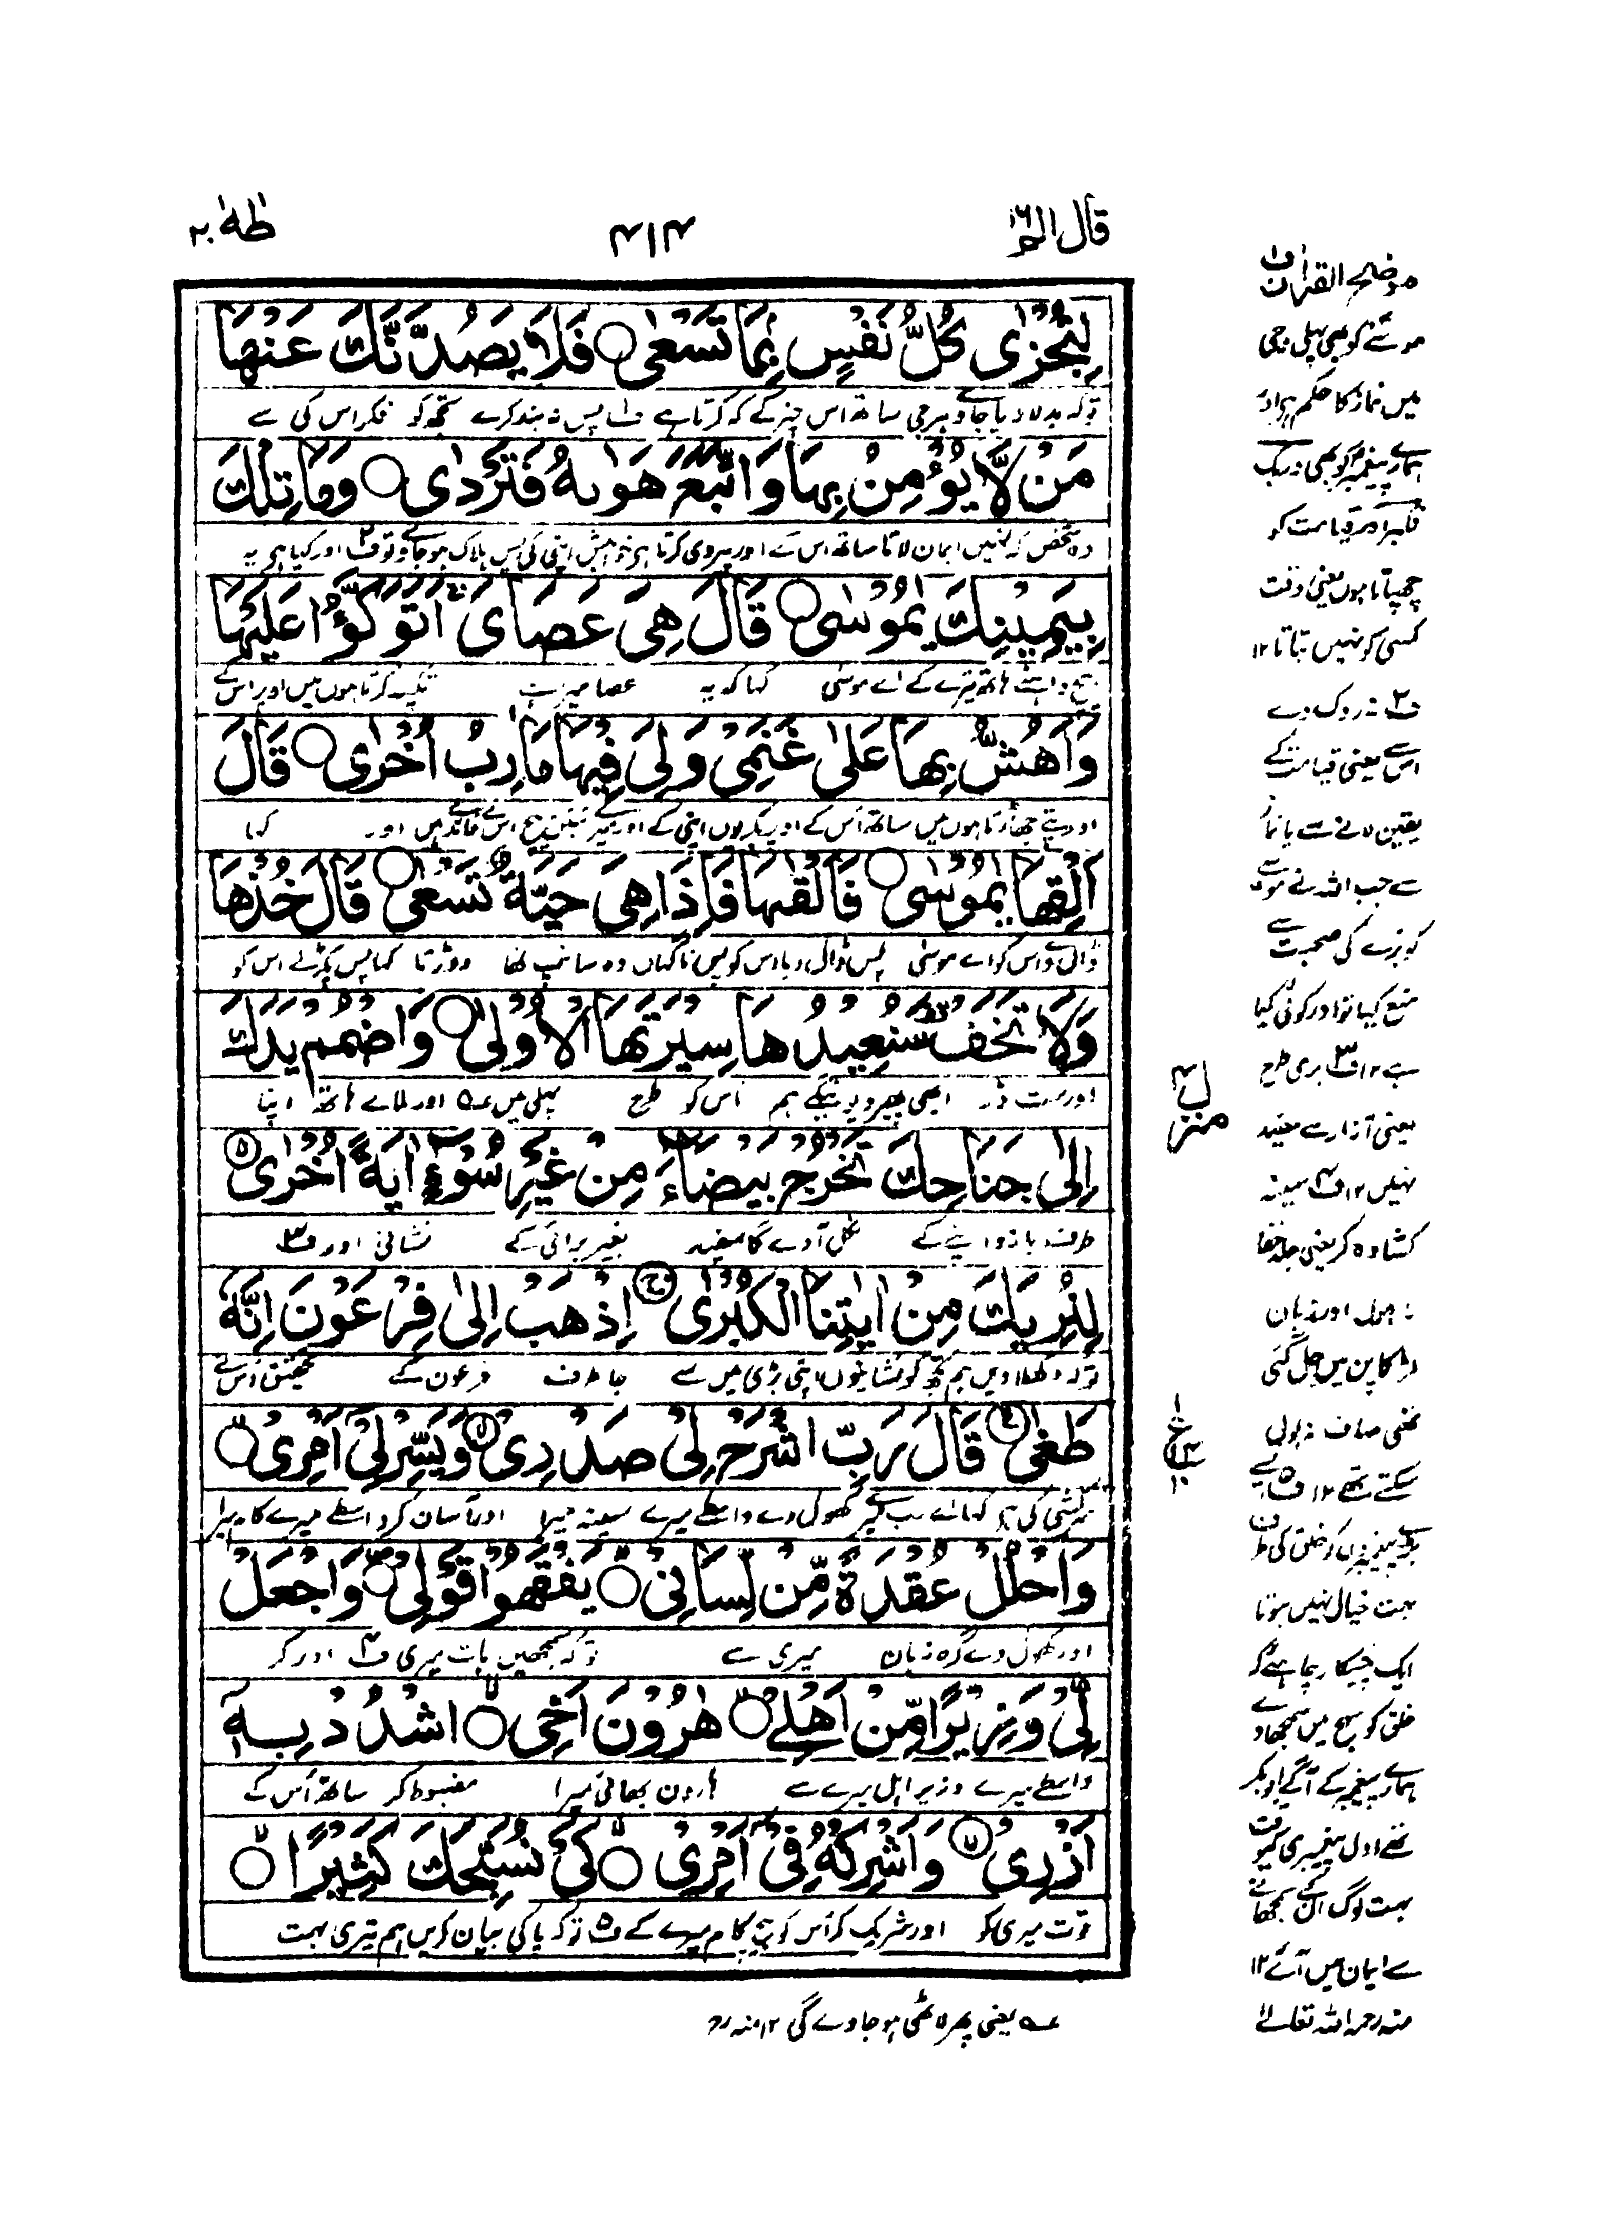 قال الم ١٦
٤١٤
طٰهٰ ٢٠
لِتُجْزٰى كُلُّ نَفْسٍۭ بِمَا تَسْعٰى ○ فَلَا يَصُدَّنَّكَ عَنْهَا
توکہ بدلا دیا جاوے ہر جی ساتھ اس چیز کے کہ کرتا ہے ف۱ پس نہ بند کرے تجھ کو فکر اس کی سے
مَنْ لَّا يُؤْمِنُ بِهَا وَاتَّبَعَ هَوٰىهُ فَتَرْدٰى ○ وَمَا تِلْكَ
وہ شخص کہ نہیں ایمان لاتا ساتھ اس کے اور پیروی کرتا ہی خواہش اپنی کی پس ہلاک ہو جاوے تو ف۲ اور کیا ہی یہ
بِيَمِيْنِكَ يٰمُوْسٰى ○ قَالَ هِيَ عَصَايَ اَتَوَكَّؤُا عَلَيْهَا
بیچ داہنے ہاتھ تیرے کے اے موسٰی کہا کہ یہ عصا میرا ہے تکیہ کرتا ہوں میں اوپر اس کے
وَاَهُشُّ بِهَا عَلٰى غَنَمِيْ وَلِيَ فِيْهَا مَاٰرِبُ اُخْرٰى ○ قَالَ
اور پتے جھاڑتا ہوں میں ساتھ اس کے اوپر بکریوں اپنی کے اور میرے تئیں بیچ اس کے فائدے ہیں اور کہا
اَلْقِهَا يٰمُوْسٰى ○ فَاَلْقٰىهَا فَاِذَا هِيَ حَيَّةٌ تَسْعٰى ○ قَالَ خُذْهَا
ڈال دے اس کو اے موسٰی پس ڈال دیا اس کو پس ناگہاں وہ سانپ تھا دوڑتا کہا پس پکڑ لے اس کو
وَلَا تَخَفْ سَنُعِيْدُهَا سِيْرَتَهَا الْاُوْلٰى ○ وَاضْمُمْ يَدَكَ
اور مت ڈر ابھی پھیر دیوینگے ہم اس کو طرح پہلی میں عہ اور ملا لے ہاتھ اپنا
اِلٰى جَنَاحِكَ تَخْرُجْ بَيْضَآءَ مِنْ غَيْرِ سُوْٓءٍ اٰيَةً اُخْرٰى ○
طرف بازو اپنے کے نکل آوے گا سفید بغیر برائی کے نشانی اور ف۳
لِنُرِيَكَ مِنْ اٰيٰتِنَا الْكُبْرٰى ○ اِذْهَبْ اِلٰى فِرْعَوْنَ اِنَّهٗ
توکہ دکھلاویں ہم تجھ کو نشانیوں اپنی بڑی میں سے جا طرف فرعون کے تحقیق اس نے
طَغٰى ○ قَالَ رَبِّ اشْرَحْ لِيْ صَدْرِيْ ○ وَيَسِّرْ لِيْٓ اَمْرِيْ ○
سرکشی کی ہے کہا اے رب میرے کھول دے واسطے میرے سینہ میرا اور آسان کر واسطے میرے کام میرا
وَاحْلُلْ عُقْدَةً مِّنْ لِّسَانِيْ ○ يَفْقَهُوْا قَوْلِيْ ○ وَاجْعَلْ
اور کھول دے گرہ زبان میری سے توکہ سمجھیں بات میری ف۴ اور کر
لِّيْ وَزِيْرًا مِّنْ اَهْلِيْ ○ هٰرُوْنَ اَخِي ○ اشْدُدْ بِهٖٓ
واسطے میرے وزیر اہل میرے سے ہارون بھائی میرا مضبوط کر ساتھ اس کے
اَزْرِيْ ○ وَاَشْرِكْهُ فِيْٓ اَمْرِيْ ○ كَيْ نُسَبِّحَكَ كَثِيْرًا ○
قوت میری کو اور شریک کر اس کو بیچ کام میرے کے ف۵ توکہ پاکی بیان کریں ہم تیری بہت
عہ یعنی پھر لاٹھی ہو جاوے گی ۱۲ منہ رح
موضح القرآن ف۱
موسٰے کو بھی پہلی وحی
میں نماز کا حکم ہے اور
ہمارے پیغمبر کو بھی ربک
فکبر اور قیامت کو
چھپاتا ہوں یعنی وقت
کسی کو نہیں بتاتا ۱۲
ف۲ نہ روک دے
اس سے یعنی قیامت کے
یقین لانے سے یا نماز
سے جب اللہ نے موسٰے
کو برے کی صحبت سے
منع کیا تو اور کوئی کیا
ہے ۱۲ ف۳ بری طرح
یعنی آزار سے سفید
نہیں ۱۲ ف۴ سینہ
کشادہ کر یعنی جلد خفا
نہ ہوں اور زبان
لڑکاپن میں جل گئی
تھی صاف نہ بول
سکتے تھے ۱۲ ف۵ ایسے
بڑے پیغمبروں کو خلق کی طرف
بہت خیال نہیں ہوتا
ایک چاہئے کہ
خلق کو بیچ میں سمجھاوے
ہمارے پیغمبر کے آگے ابوبکر
تھے اول پیغمبری کے وقت
بہت لوگ ان کے سمجھانے
سے ایمان میں آئے ۱۲
منہ رحمہ اللہ تعالٰے
منزل ٤
ع